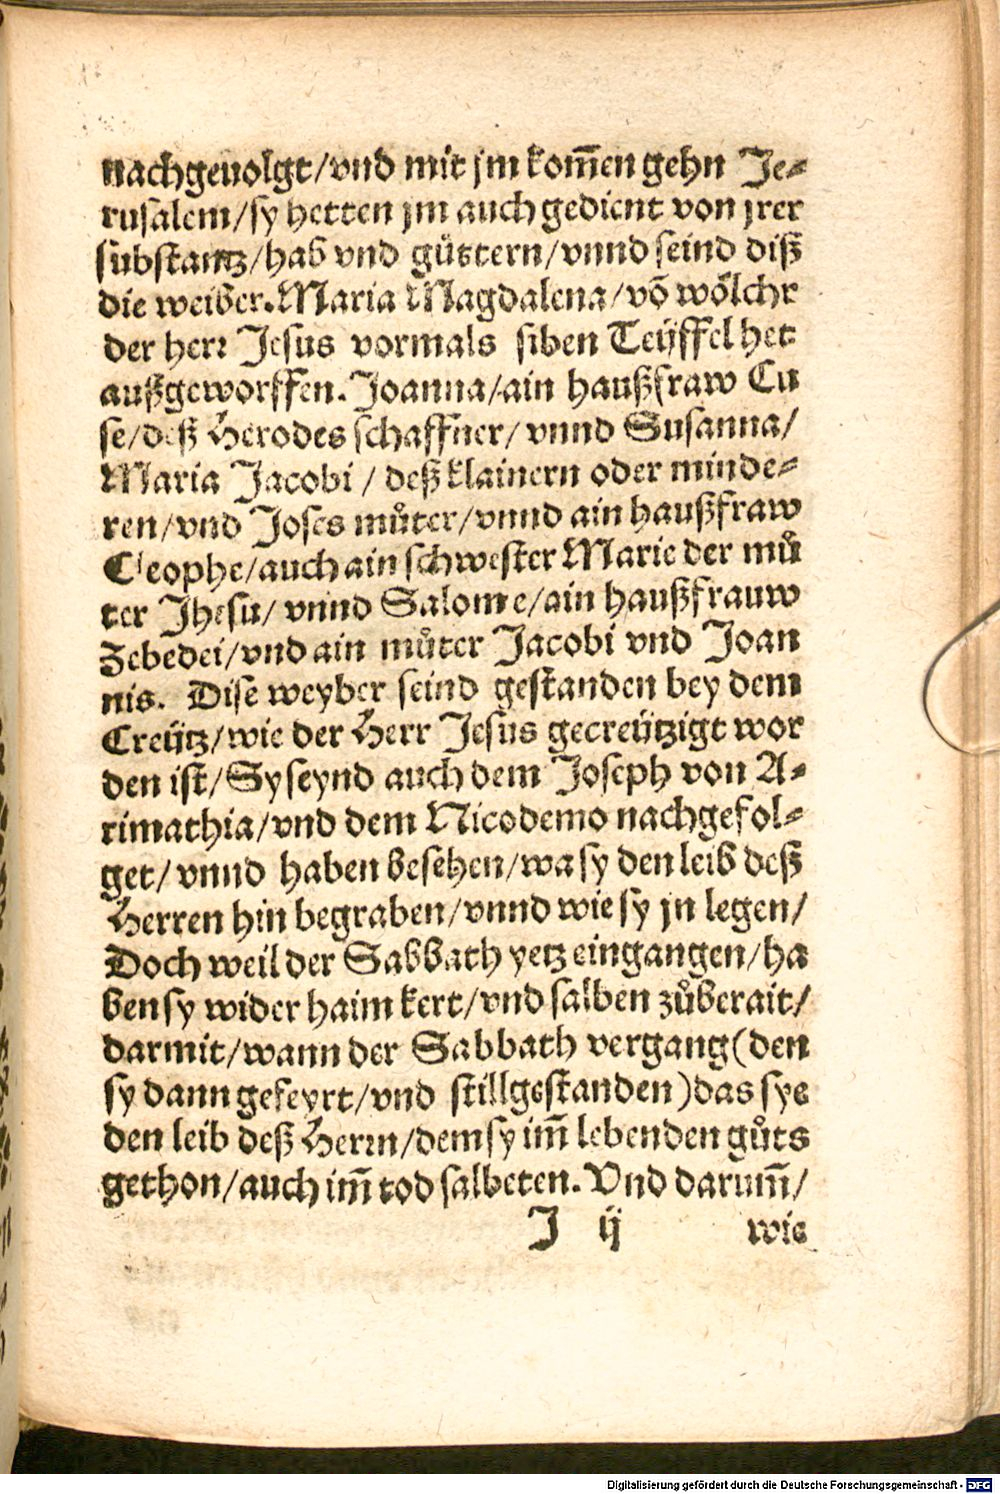 nachgeuolgt/vnd mit jm kom̃en gehn Je-
rusalem/sy hetten jm auch gedient von jrer
substantz/hab vnd güttern/vnnd seind diß
die weiber. Maria Magdalena/võ wölchr
der herr Jesus vormals siben Teüffel het
außgeworffen. Joanna/ain haußfraw Cu
se/deß Herodes schaffner/vnnd Susanna/
Maria Jacobi/deß klainern oder minde-
ren/vnd Joses můter/vnnd ain haußfraw
Cleophe/auch ain schwester Marie der mů
ter Jhesu/vnnd Salome/ain haußfrauw
Zebedei/vnd ain můter Jacobi vnd Joan
nis. Dise weyber seind gestanden bey dem
Creütz/wie der Herr Jesus gecreützigt wor
den ist/Sy seynd auch dem Joseph von A-
rimathia/vnd dem Nicodemo nachgefol-
get/vnnd haben besehen/wa sy den leib deß
Herren hin begraben/vnnd wie sy jn legen/
Doch weil der Sabbath yetz eingangen/ha
ben sy wider haim kert/vnd salben zůberait/
darmit/wann der Sabbath vergang(den
sy dann gefeyrt/vnd stillgestanden)das sye
den leib deß Herrn/dem sy im̃ lebenden gůts
gethon/auch im̃ tod salbeten. Vnd darum̃/
J ij wie
Digitalisierung gefördert durch die Deutsche Forschungsgemeinschaft - DFG